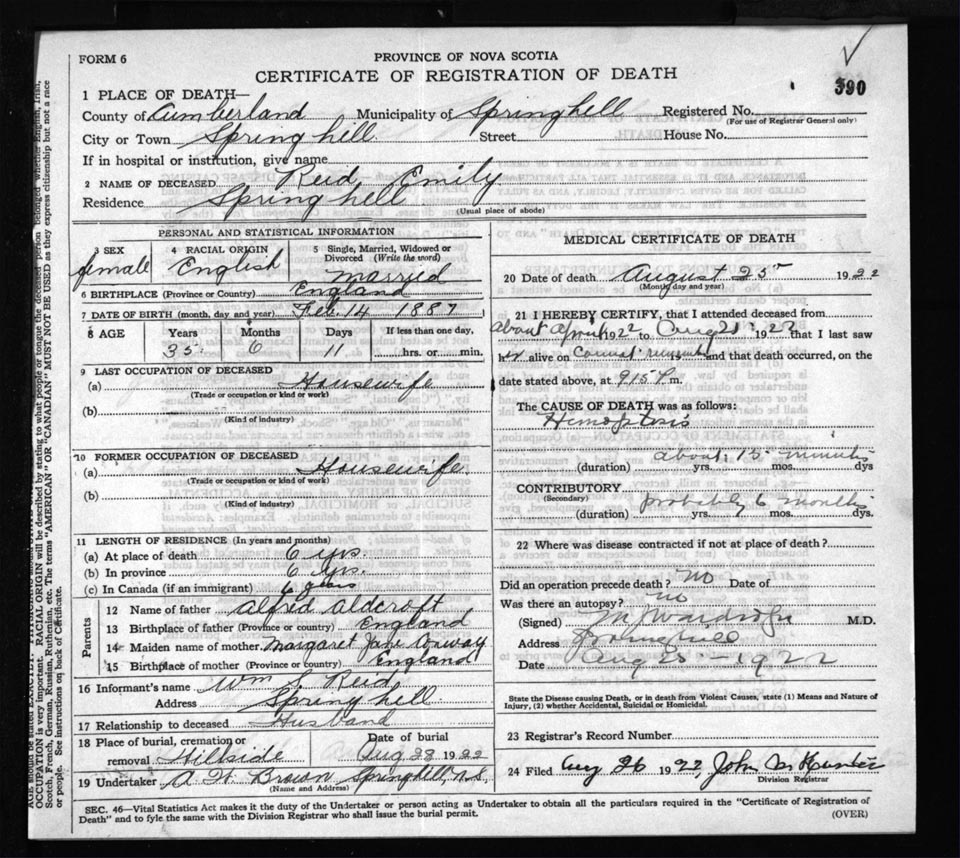 FORM 6
PROVINCE OF NOVA SCOTIA
CERTIFICATE OF REGISTRATION OF DEATH
390
1 PLACE OF DEATH—
County of Cumberland Municipality of Springhell Registered No.
(For use of Registrar General only)
City or Town Spring hell Street House No.
If in hospital or institution, give name
2 NAME OF DECEASED Reid Emily
Residence Spring hell
(Usual place of abode)
PERSONAL AND STATISTICAL INFORMATION
3 SEX 4 RACIAL ORIGIN 5 Single, Married, Widowed or Divorced (Write the word)
female English married
6 BIRTHPLACE (Province or Country) England
7 DATE OF BIRTH (month, day and year) Feb. 14 1887
8 AGE Years Months Days If less than one day,
35 6 11 hrs. or min.
9 LAST OCCUPATION OF DECEASED
(a) Housewife
(Trade or occupation or kind or work)
(b)
(Kind of industry)
10 FORMER OCCUPATION OF DECEASED
(a) Housewife
(Trade or occupation or kind or work)
(b)
(Kind of industry)
11 LENGTH OF RESIDENCE (In years and months)
(a) At place of death 6 yrs.
(b) In province 6 yrs.
(c) In Canada (if an immigrant) 6 years
Parents
12 Name of father Alfred Aldcroft
13 Birthplace of father (Province or country) England
14 Maiden name of mother Margaret Jane Conway
15 Birthplace of mother (Province or country) England
16 Informant's name Wm S Reid
Address Spring hell
17 Relationship to deceased Husband
18 Place of burial, cremation or removal Hillside Date of burial Aug 28 1922
19 Undertaker A W Brown Springhell, N.S.
(Name and Address)
MEDICAL CERTIFICATE OF DEATH
20 Date of death August 25 1922
(Month, day and year)
21 I HEREBY CERTIFY, that I attended deceased from
About April 1922 to Aug 21 1922 that I last saw
her alive on and that death occurred, on the
date stated above, at 915 P m.
The CAUSE OF DEATH was as follows:
Hemoptosis
about 15 minutes
(duration) yrs. mos. dys
CONTRIBUTORY
(Secondary) probably 6 months
(duration) yrs. mos. dys.
22 Where was disease contracted if not at place of death?
Did an operation precede death? no Date of
Was there an autopsy? no
(Signed) M Wardrope M.D.
Address Springhill
Date Aug 25 - 1922
State the Disease causing Death, or in death from Violent Causes, state (1) Means and Nature of
Injury, (2) whether Accidental, Suicidal or Homicidal.
23 Registrar's Record Number
24 Filed Aug 26 1922, John
Division Registrar
SEC. 46—Vital Statistics Act makes it the duty of the Undertaker or person acting as Undertaker to obtain all the particulars required in the "Certificate of Registration of
Death" and to fyle the same with the Division Registrar who shall issue the burial permit.
(OVER)
OCCUPATION is very important. RACIAL ORIGIN will be described by stating to what people or tongue the deceased person belonged whether English, Irish,
Scotch, French, German, Russian, Ruthenian, etc. The terms "AMERICAN" or "CANADIAN" MUST NOT BE USED as they express citizenship but not a race
or people. See instructions on back of Certificate.